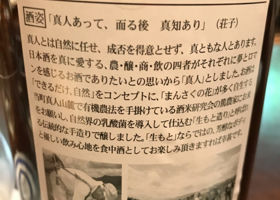 酒姿 「真人あって、而る後 真知あり」(荘子)
真人とは自然に任せ、成否を得意とせず、真ともな人とあります。
日本酒を真に愛する、農・醸・商・飲の四者がそれぞれに夢とロマ
ンを感じるお酒でありたいとの思いから「真人」としました。お酒は
「できるだけ、自然」をコンセプトに、「まんさくの花」が多く自生する
当町真人山麓で有機農法を手掛けている酒米研究会の篤農家にお米
をお願いし、自然界の乳酸菌を導入して仕込む「生もと造り」と呼ばれ
る伝統的な手造りで醸しました。「生もと」ならではの、芳醇なボディ
と優しい飲み心地を食中酒としてお楽しみ頂きますれば幸甚です。